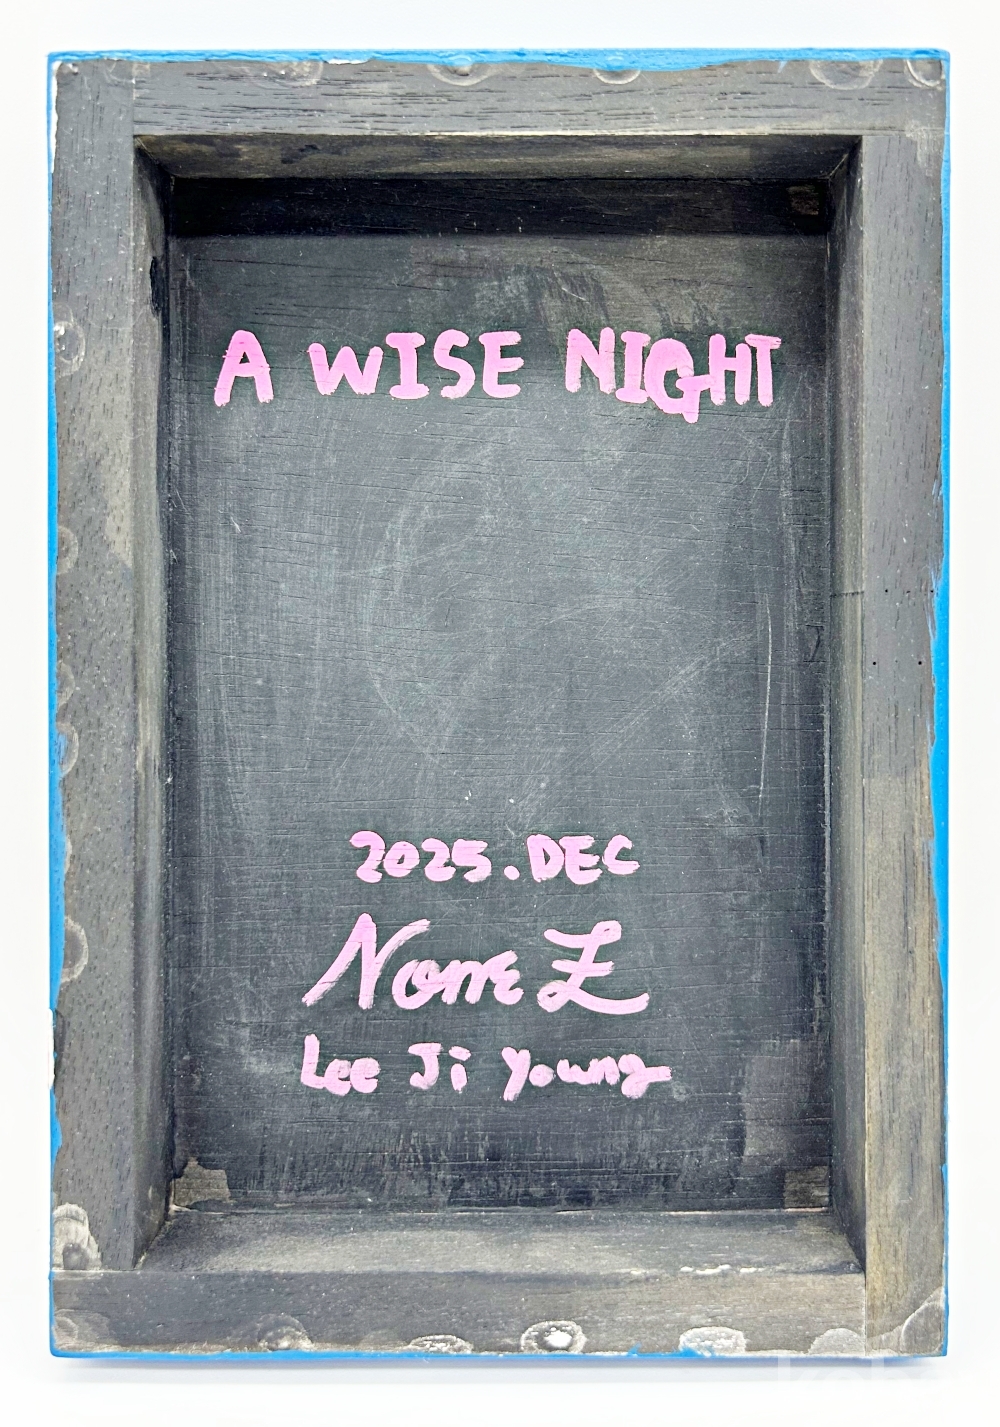 A WISE NIGHT
2025.DEC
Nome L
Lee Ji Young